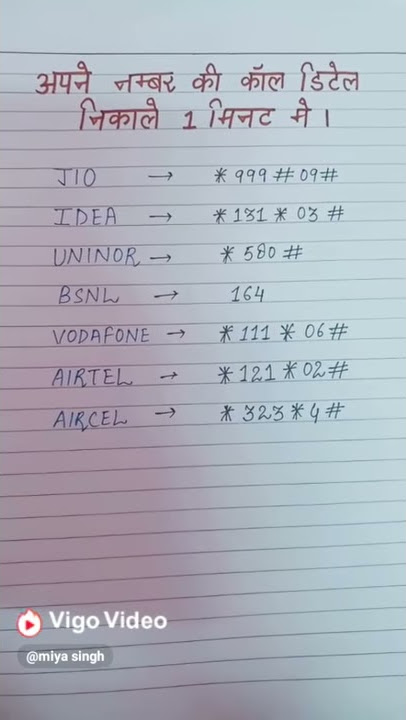 अपने नम्बर की कॉल डिटेल
निकाले 1 मिनट मे ।
JIO → *999#09#
IDEA → *131*03#
UNINOR → *580#
BSNL → 164
VODAFONE → *111*06#
AIRTEL → *121*02#
AIRCEL → *323*4#
Vigo Video
@miya singh